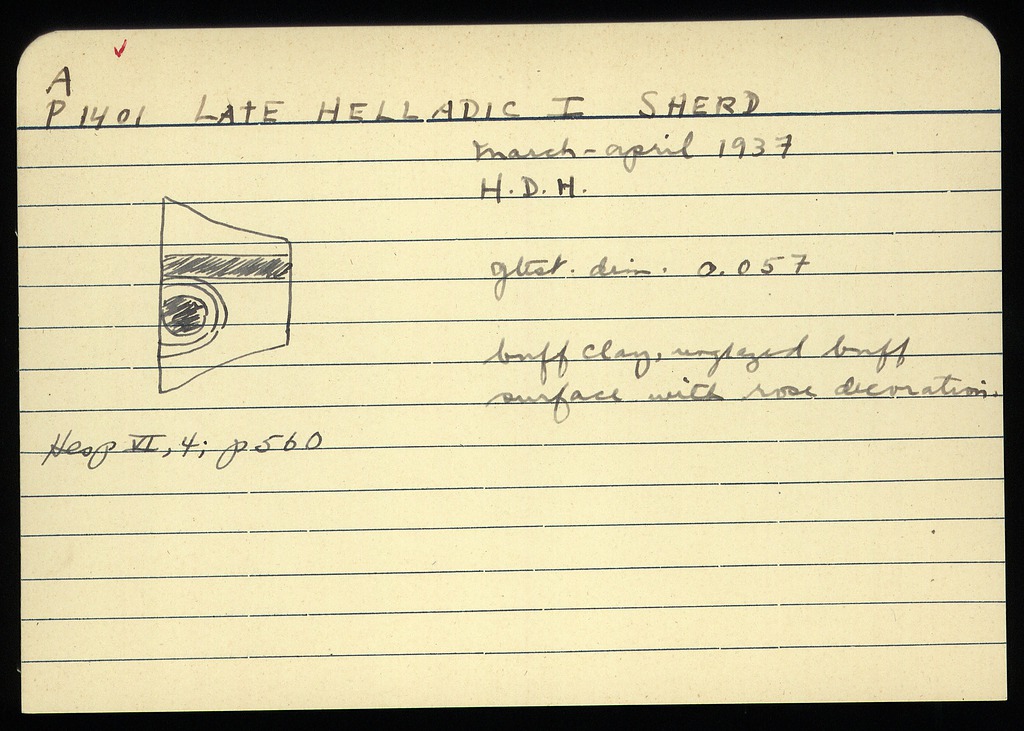 A
P 1401 LATE HELLADIC I SHERD
March-April 1937
H.D.H.
gtest. dim. 0.057
buff clay, unglazed buff
surface with rose decoration.
Hesp VI, 4; p 560